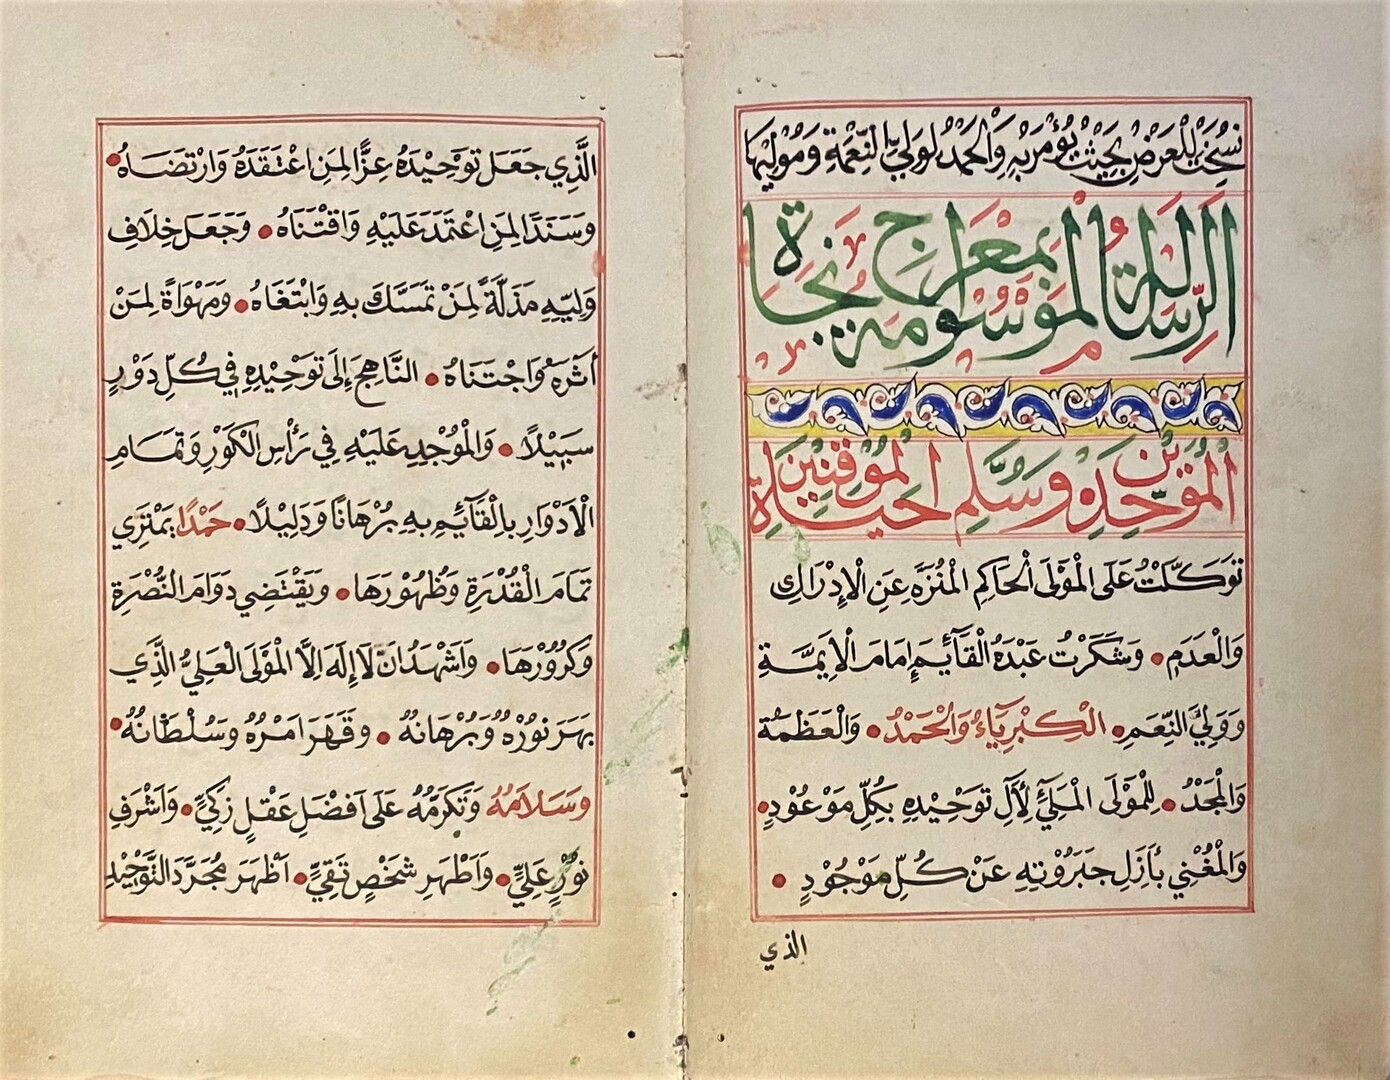 نُسِخَتْ لِلْعَرْضِ بِحَيْثُ يُؤْمَرُ بِهِ وَالْحَمْدُ لِوَلِيِّ النِّعْمَةِ وَمُوْلِيْهَا
الرِّسَالَةُ الْمَوْسُوْمَةُ بِمِعْرَاجِ نَجَاةِ
الْمُوَحِّدِيْنَ وَسُلَّمِ حَيَاةِ الْمُوقِنِيْنَ
تَوَكَّلْتُ عَلَى الْمَوْلَى الْحَاكِمِ الْمُنَزَّهِ عَنِ الْإِدْرَاكِ
وَالْعَدَمِ • وَشَكَرْتُ عَبْدَهُ الْقَآئِمَ إِمَامَ الْاَئِمَّةِ
وَوَلِيَّ النِّعَمِ • الْكِبْرِيَآءُ وَالْحَمْدُ • وَالْعَظَمَةُ
وَالْمَجْدُ • لِلْمَوْلَى الْمَلِيِّ لِآلِ تَوْحِيْدِهِ بِكُلِّ مَوْعُوْدٍ •
وَالْمُغْنِي بِأَزَلِ جَبَرُوْتِهِ عَنْ كُلِّ مَوْجُوْدٍ •
الذي
الَّذِي جَعَلَ تَوْحِيْدَهُ عِزًّا لِمَنِ اعْتَقَدَهُ وَارْتَضَاهُ •
وَسَنَدًا لِمَنِ اعْتَمَدَ عَلَيْهِ وَاقْتَنَاهُ • وَجَعَلَ خِلَافَ
وَلِيِّهِ مَذَلَّةً لِمَنْ تَمَسَّكَ بِهِ وَابْتَغَاهُ • وَمَهْوَاةً لِمَنْ
أَثَرَهُ وَاجْتَنَاهُ • النَّاهِجِ إِلَى تَوْحِيْدِهِ فِي كُلِّ دَوْرٍ
سَبِيْلًا • وَالْمُوْجِدِ عَلَيْهِ فِي رَأْسِ الْكَوْرِ وَتَمَامِ
الْاَدْوَارِ بِالْقَآئِمِ بِهِ بُرْهَانًا وَدَلِيْلًا • حَمْدًا يَمْتَرِي
تَمَامَ الْقُدْرَةِ وَظُهُوْرَهَا • وَيَقْتَضِي دَوَامَ النُّصْرَةِ
وَكُرُوْرَهَا • وَاَشْهَدُ اَنْ لَا إِلَهَ اِلَّا الْمَوْلَى الْعَلِيُّ الَّذِي
بَهَرَ نُوْرُهُ وَبُرْهَانُهُ • وَقَهَرَ اَمْرُهُ وَسُلْطَانُهُ •
وَسَلَامُهُ وَتَكَرُّمُهُ عَلَى اَفْضَلِ عَقْلٍ زَكِيٍّ • وَاَشْرَفِ
نُوْرٍ عَلِيٍّ • وَاَطْهَرِ شَخْصٍ تَقِيٍّ • اَظْهَرَ مُجَرَّدَ التَّوْحِيْدِ